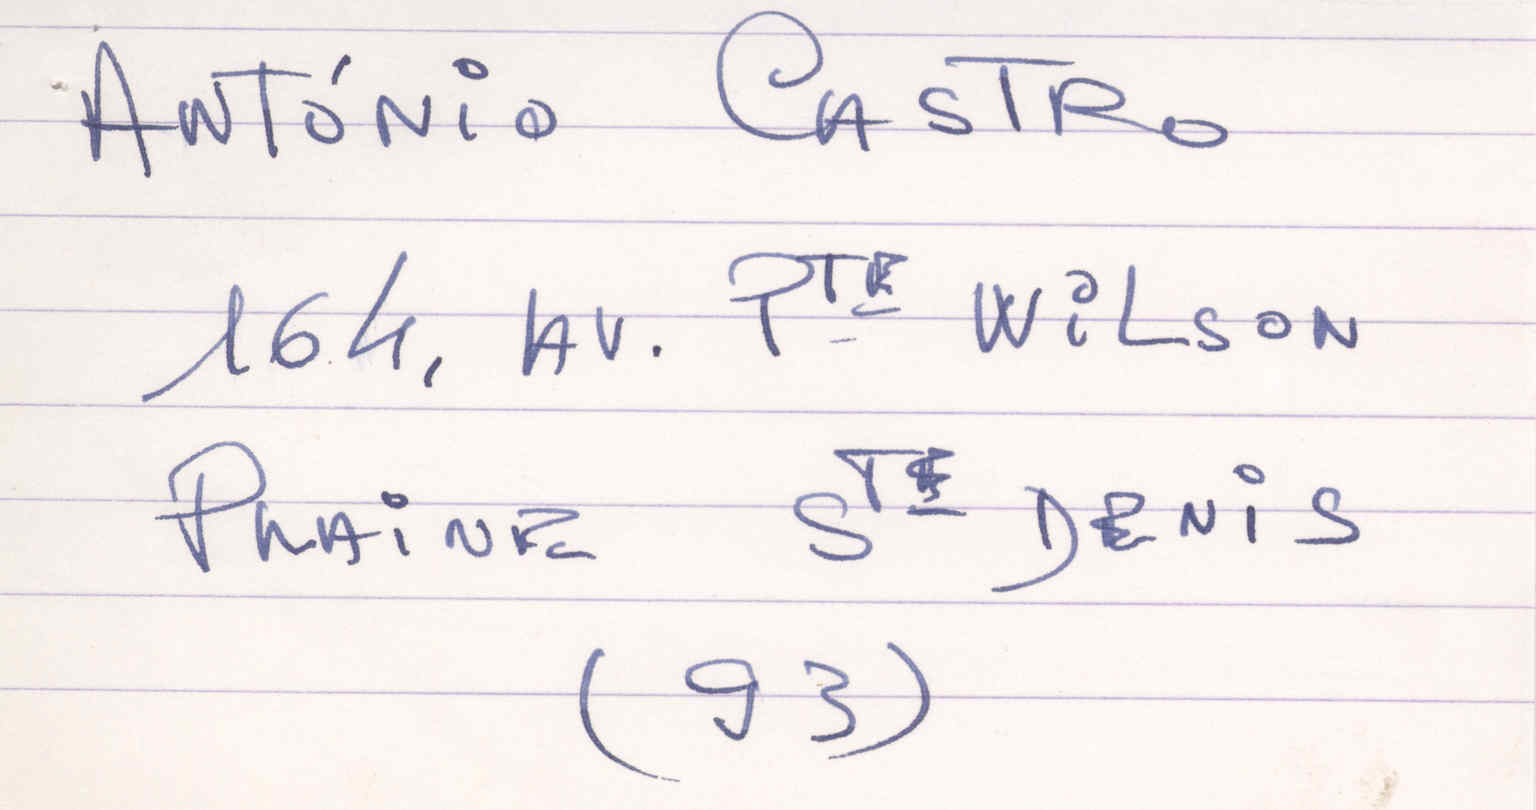 António Castro
164, Av. Pte Wilson
Plaine Ste Denis
(93)